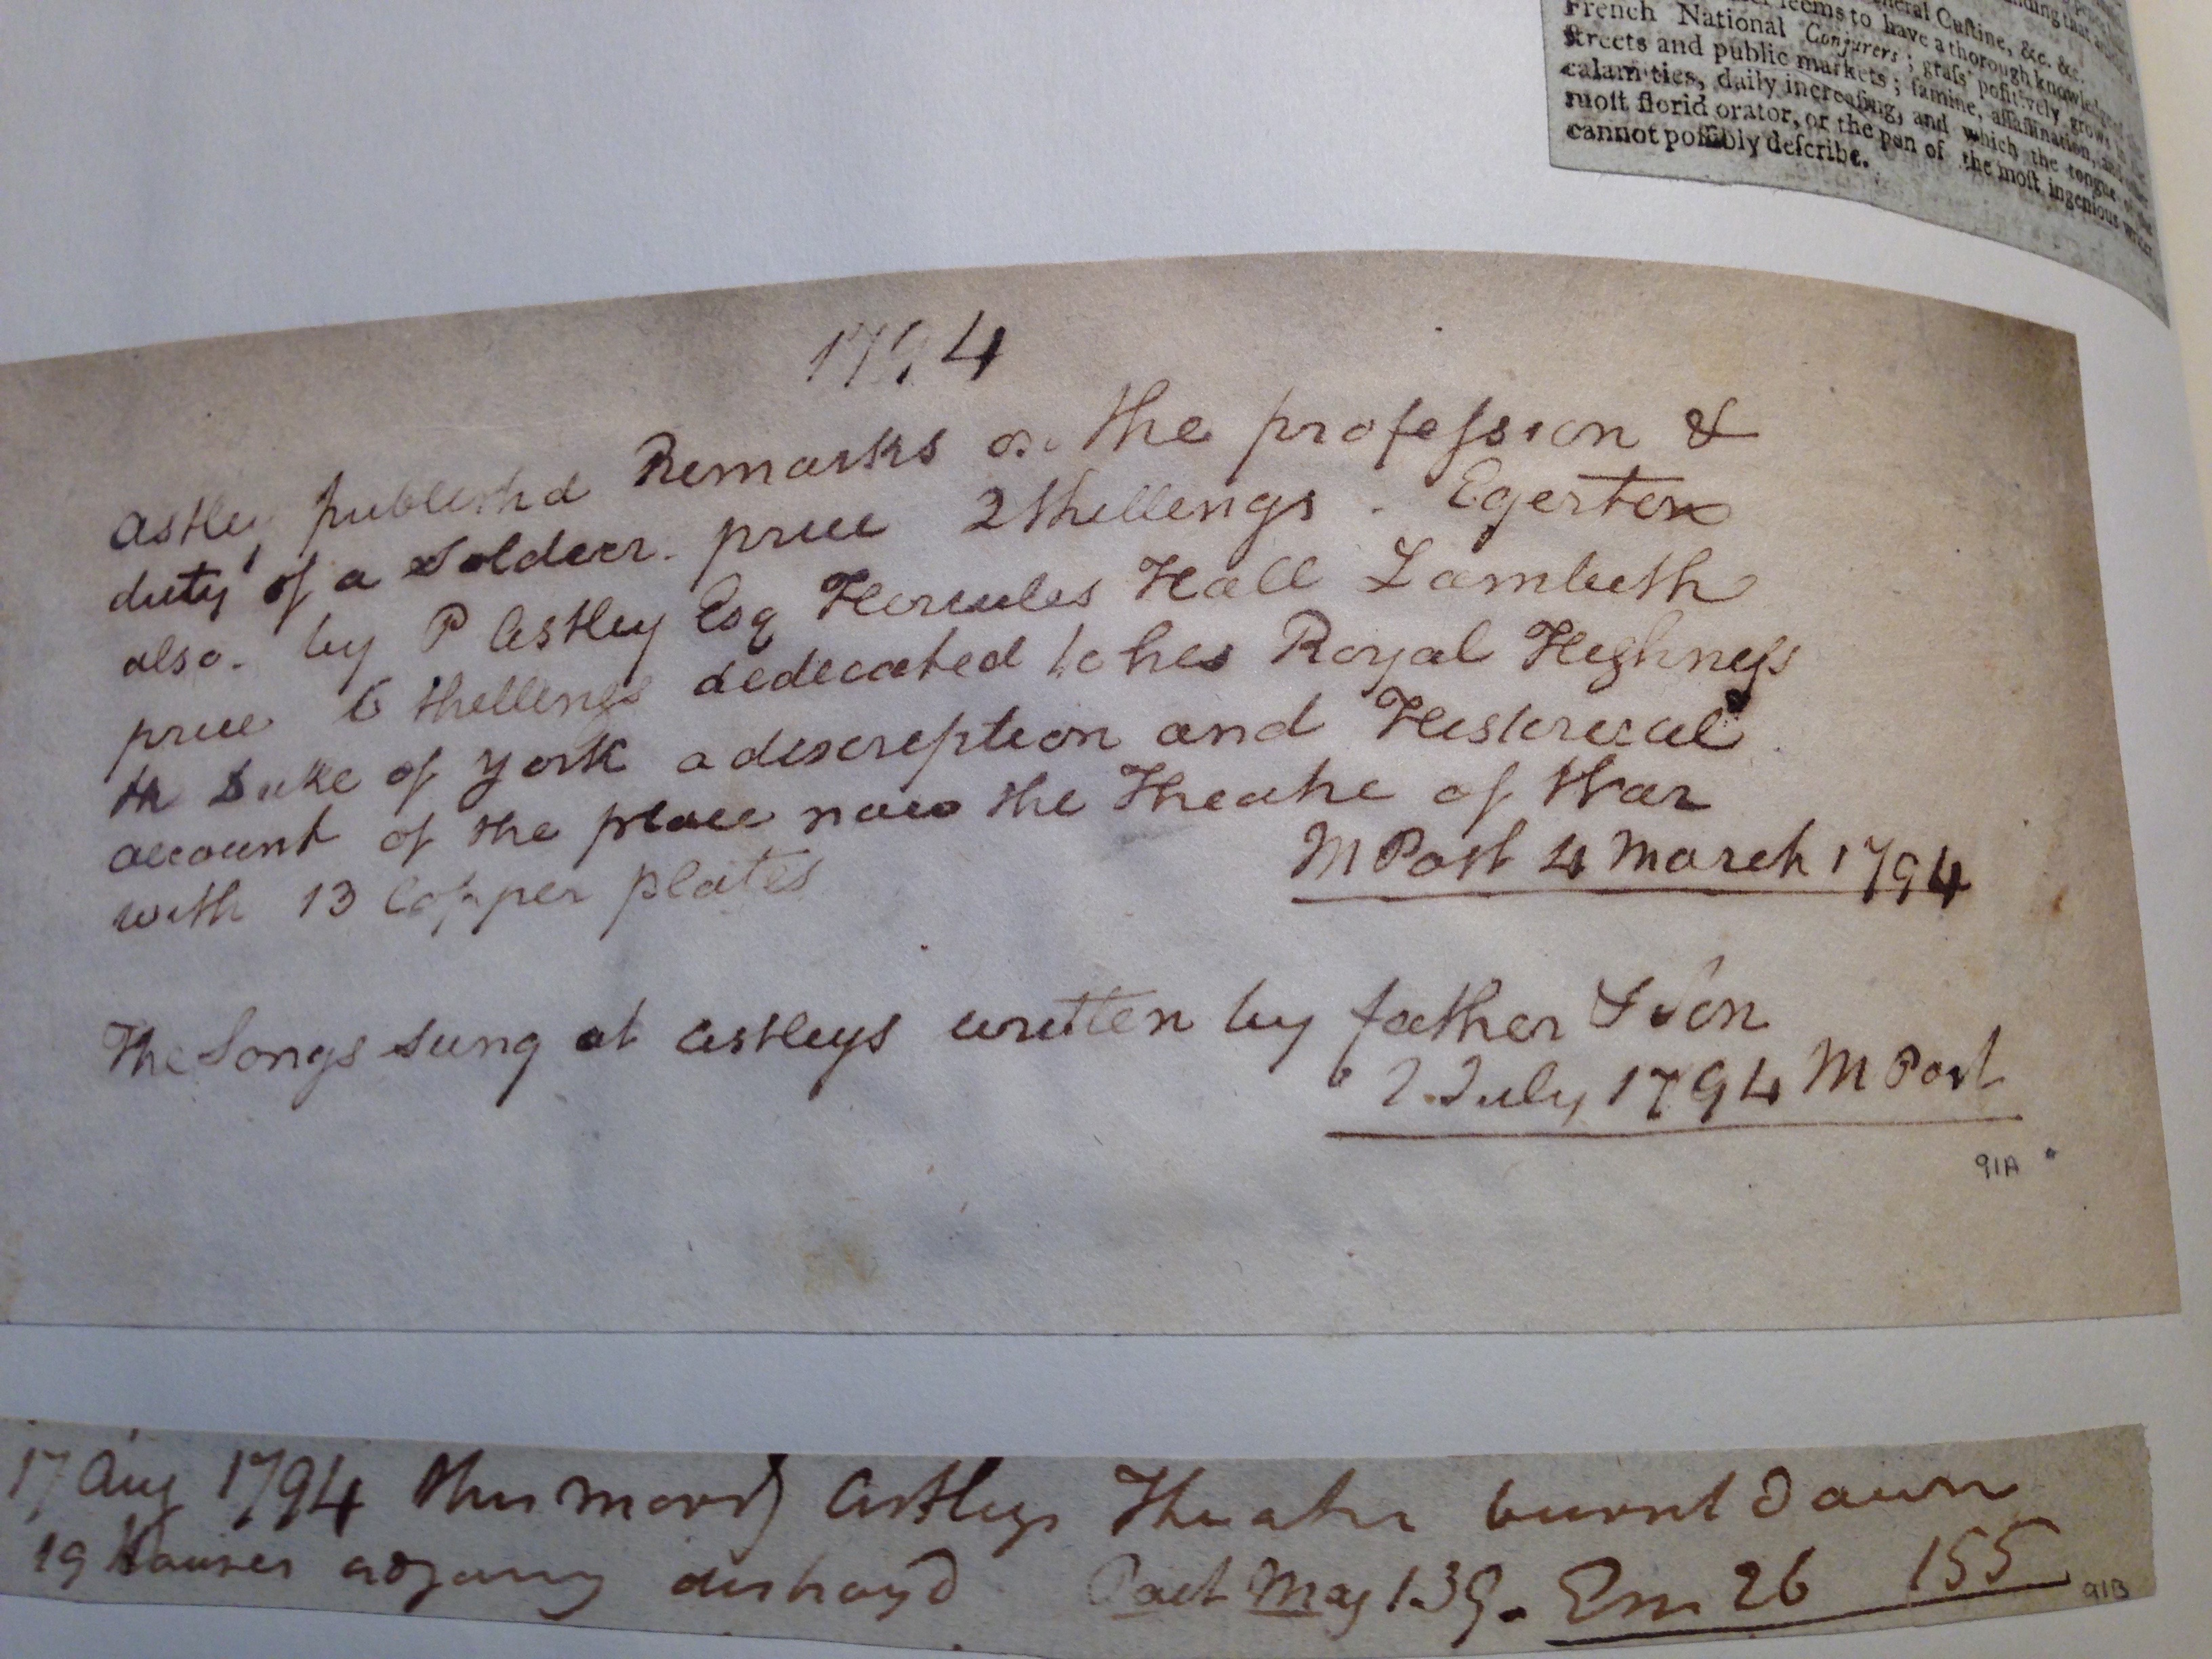 neral Cuſtine, &c. &c.
ſeems to have a thorough knowledge of
French National Conjurers; graſs poſitively grows in
ſtreets and public markets; famine, aſſaſſination, and
calamities, daily increaſing, and which the tongue of the
moſt florid orator, or the pen of the moſt ingenious writer
cannot poſſibly deſcribe.
1794
Astley published Remarks on the profeſsion &
duty of a Soldier. price 2 Shillings. Egerton
also. by P Astley Esq Hercules Hall Lambeth
price 6 Shillings dedicated to his Royal Highneſs
the Duke of York a discription and Historical
account of the place now the Theatre of War
with 13 Copper plates
M Post 4 March 1794
The Songs sung at Astleys written by father & Son
2 July 1794 M Post
91A
17 Aug 1794 this morng Astleys Theatre burnt down
19 houses adjoing distroyd Mag 139. 26 155
91B